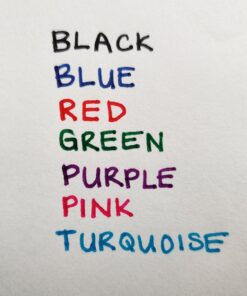 BLACK
BLUE
RED
GREEN
PURPLE
PINK
TURQUOISE